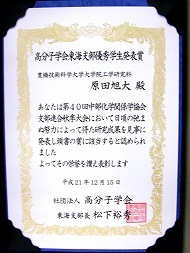 高分子学会東海支部優秀学生発表賞
豊橋技術科学大学大学院工学研究科
原田旭大 殿
あなたは第40回中部化学関係学協会
支部連合秋季大会において日頃の弛ま
ぬ努力によって得た研究成果を見事に
発表し頭書の賞に該当すると認められました
よってその栄誉を讃え表彰します
平成21年12月15日
社団法人 高分子学会
東海支部長 松下裕秀